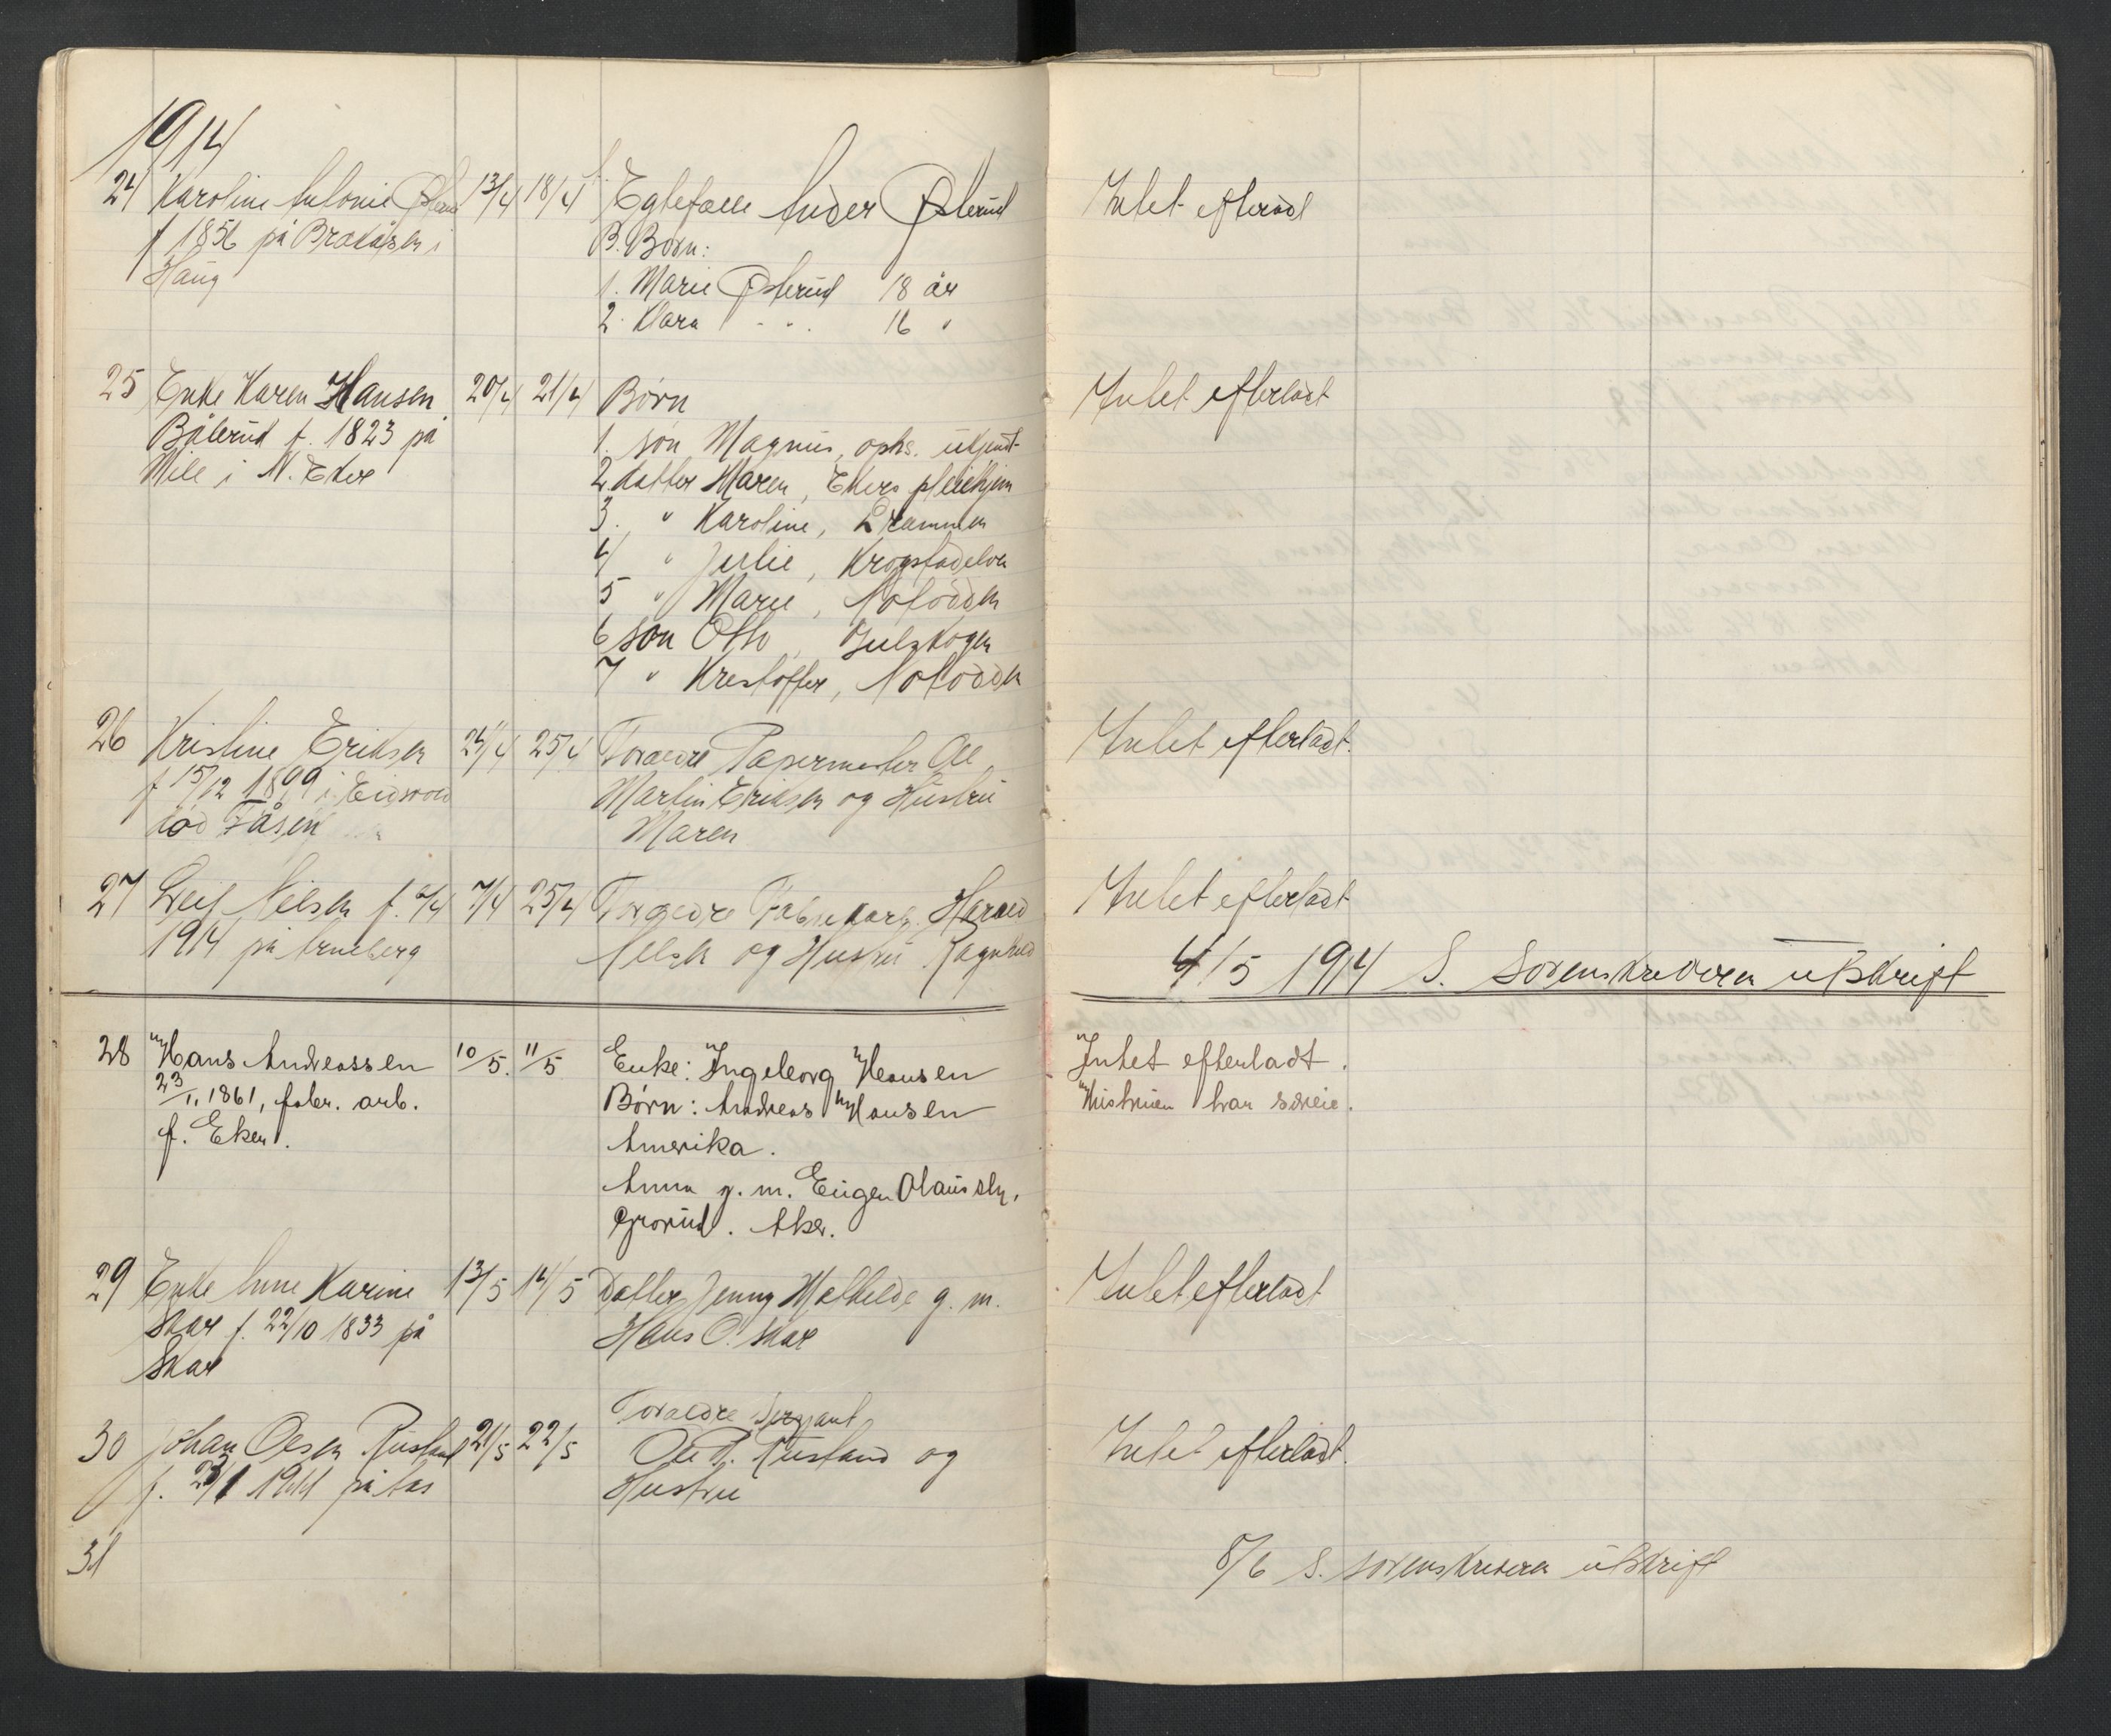 1914
24 Karoline Antonie Østerud 13/4 18/4 Egtefælle Anders Østerud Intet efterladt
f 1856 på Brakåsen i B. Børn:
Haug 1. Marie Østerud 18 år
2. Klara - " - 16 "
25 Enke Karen Hansen 20/4 21/4 Børn Intet efterladt
Bålerud f. 1823 på 1. søn Magnus, ophs. ukjendt
Hile i N. Eker 2. datter Maren, Ekers pleiehjem
3. " Karoline, Drammen
4 " Julie, Krogstadelven
5 " Marie, Notodden
6 søn Otto, Gulskogen
7 " Kristoffer, Notodden
26 Kristine Eriksen 24/4 25/4 Forældre Papermester Ole Intet efterladt.
f 15/12 1899 i Eidsvold Martin Eriksen og Hustru
død Fåsen Maren
27 Leif Nilsen f. 7/4 25/4 Forældre Fabrikarb. Harald Intet efterladt
1914 på Arneberg Nilsen og Hustru Ragnhild
4/5 1914 S. Sorenskriveren utskrift
28 Hans Andreassen 10/5. 11/5 Enke: Ingeborg Hansen Intet efterladt.
23/1. 1861, fabr. arb. Børn: Andreas Hansen Hustruen har skreie.
f. Eker. Amerika.
Anna g. m. Eugen Olaussen,
Grorud. Aker.
29 Enke Anne Karine 13/5 14/5 Datter Jenny Mathilde g. m. Intet efterladt
Skar f. 22/10 1833 på Hans O. Skar
Skar
Forældre Sergeant
30 Johan Olsen Rustand 21/5 22/5 Ole P. Rustand og Intet efterladt.
f. 1911 på Aas Hustru
31
8/6 S. sorenskriveren utskrift